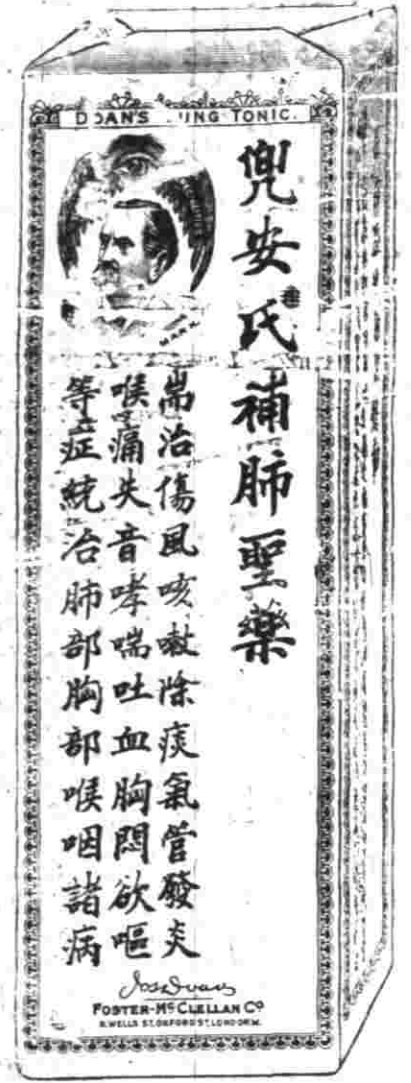 DOAN'S LUNG TONIC.
MARK.
兜安氏補肺聖藥
耑治傷風咳嗽除痰氣管發炎
喉痛失音哮喘吐血胸悶欲嘔
等症統治肺部胸部喉咽諸病
FOSTER-McCLELLAN Co
8.WELLS ST.OXFORD ST.LONDON.W.